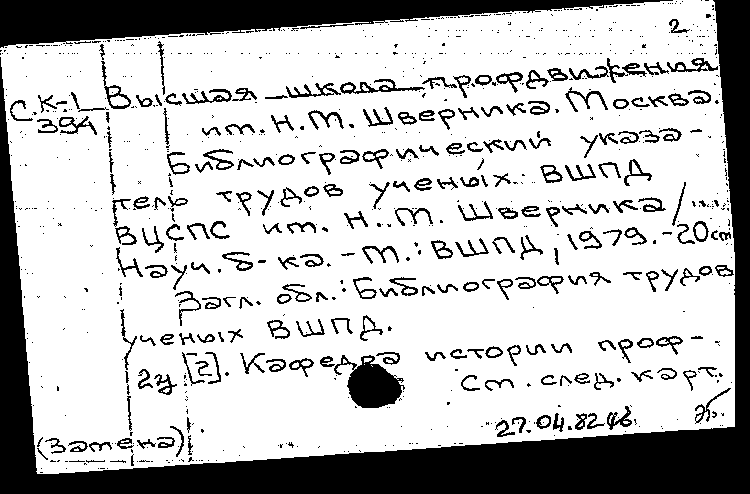 2
С.К-1 Высшая школа профдвижения
394 им. Н.М. Шверника. Москва.
Библиографический указа-
тель трудов ученых ВШПД
ВЦСПС им. Н.М. Шверника /
Науч. б-ка. - М.: ВШПД, 1979. - 20 см
Загл. обл.: Библиография трудов
ученых ВШПД.
2ц [2]. Кафедра истории проф-
См. след. карт.
27.04.82
(Замена)